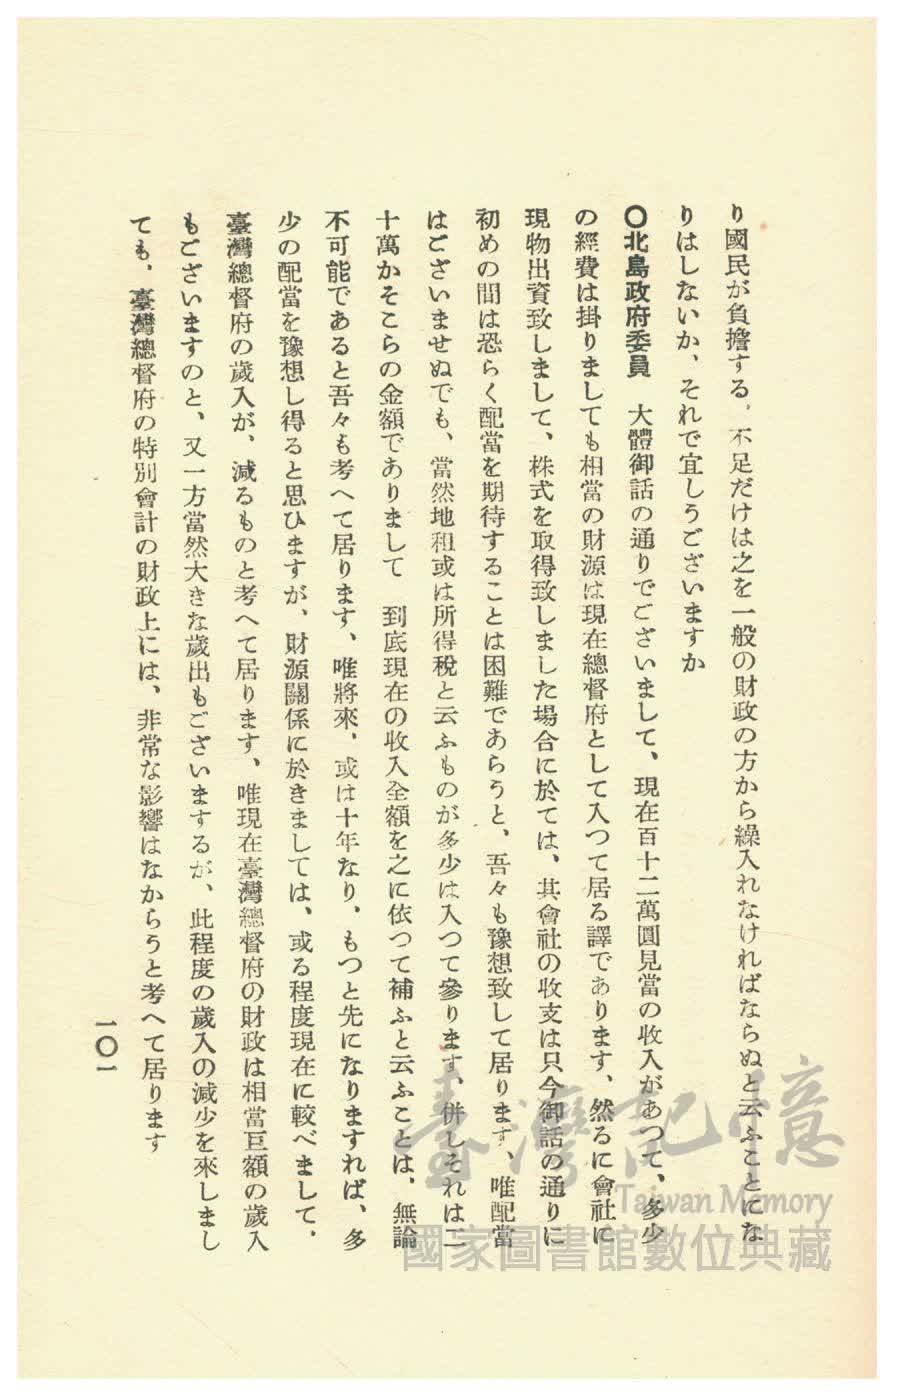 り國民が負擔する、不足だけは之を一般の財政の方から繰入れなければならぬと云ふことにな
りはしないか、それで宜しうございますか
〇北島政府委員　大體御話の通りでございまして、現在百十二萬圓見當の收入があつて、多少
の經費は掛りましても相當の財源は現在總督府として入つて居る譯であります、然るに會社に
現物出資致しまして、株式を取得致しました場合に於ては、其會社の收支は只今御話の通りに
初めの間は恐らく配當を期待することは困難であらうと、吾々も豫想致して居ります、唯配當
はございませぬでも、當然地租或は所得稅と云ふものが多少は入つて參ります、併しそれは二
十萬かそこらの金額でありまして　到底現在の收入全額を之に依つて補ふと云ふことは、無論
不可能であると吾々も考へて居ります、唯將來、或は十年なり、もつと先になりますれば、多
少の配當を豫想し得ると思ひますが、財源關係に於きましては、或る程度現在に較べまして、
臺灣總督府の歲入が、減るものと考へて居ります、唯現在臺灣總督府の財政は相當巨額の歲入
もございますのと、又一方當然大きな歲出もございまするが、此程度の歲入の減少を來しまし
ても、臺灣總督府の特別會計の財政上には、非常な影響はなからうと考へて居ります
一〇一
臺灣記憶
Taiwan Memory
國家圖書館數位典藏